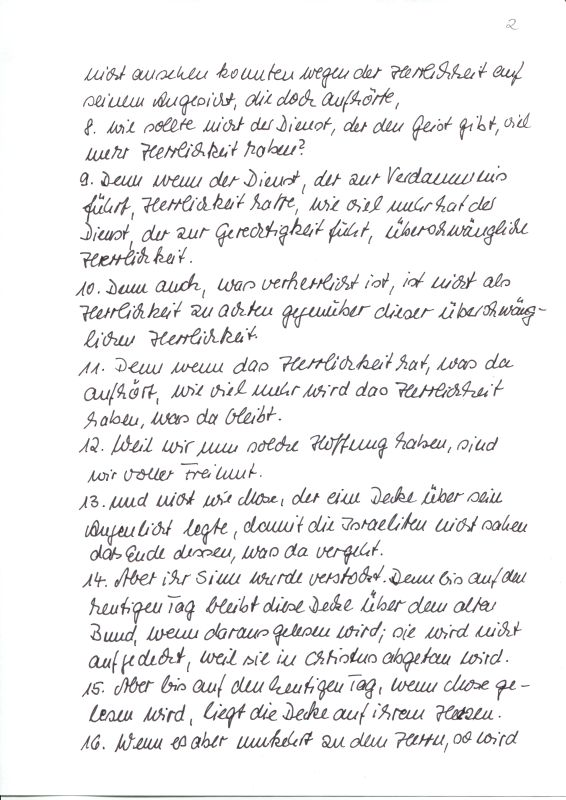 2
nicht ansehen konnten wegen der Herrlichkeit auf
seinem Angesicht, die doch aufhörte,
8. wie sollte nicht der Dienst, der den Geist gibt, viel
mehr Herrlichkeit haben?
9. Denn wenn der Dienst, der zur Verdammnis
führt, Herrlichkeit hatte, wie viel mehr hat der
Dienst, der zur Gerechtigkeit führt, überschwängliche
Herrlichkeit.
10. Denn auch, was verherrlicht ist, ist nicht als
Herrlichkeit zu achten gegenüber dieser überschwäng-
lichen Herrlichkeit.
11. Denn wenn das Herrlichkeit hat, was da
aufhört, wie viel mehr wird das Herrlichkeit
haben, was da bleibt.
12. Weil wir nun solche Hoffnung haben, sind
wir voller Freimut.
13. und nicht wie Mose, der eine Decke über sein
Angesicht legte, damit die Israeliten nicht sahen
das Ende dessen, was da vergeht.
14. Aber ihr Sinn wurde verstockt. Denn bis auf den
heutigen Tag bleibt diese Decke über dem alten
Bund, wenn daraus gelesen wird; sie wird nicht
aufgedeckt, weil sie in Christus abgetan wird.
15. Aber bis auf den heutigen Tag, wenn Mose ge-
lesen wird, liegt die Decke auf ihrem Herzen.
16. Wenn es aber umkehrt zu dem Herrn, so wird